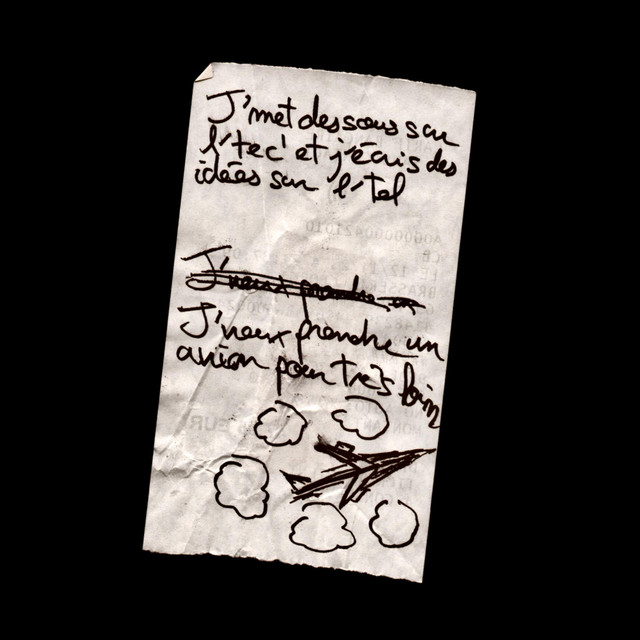 J'met des sous sur
l'tec' et j'écris des
idées sur l'tel
J'veux prendre un
J'veux prendre un
avion pour très loin